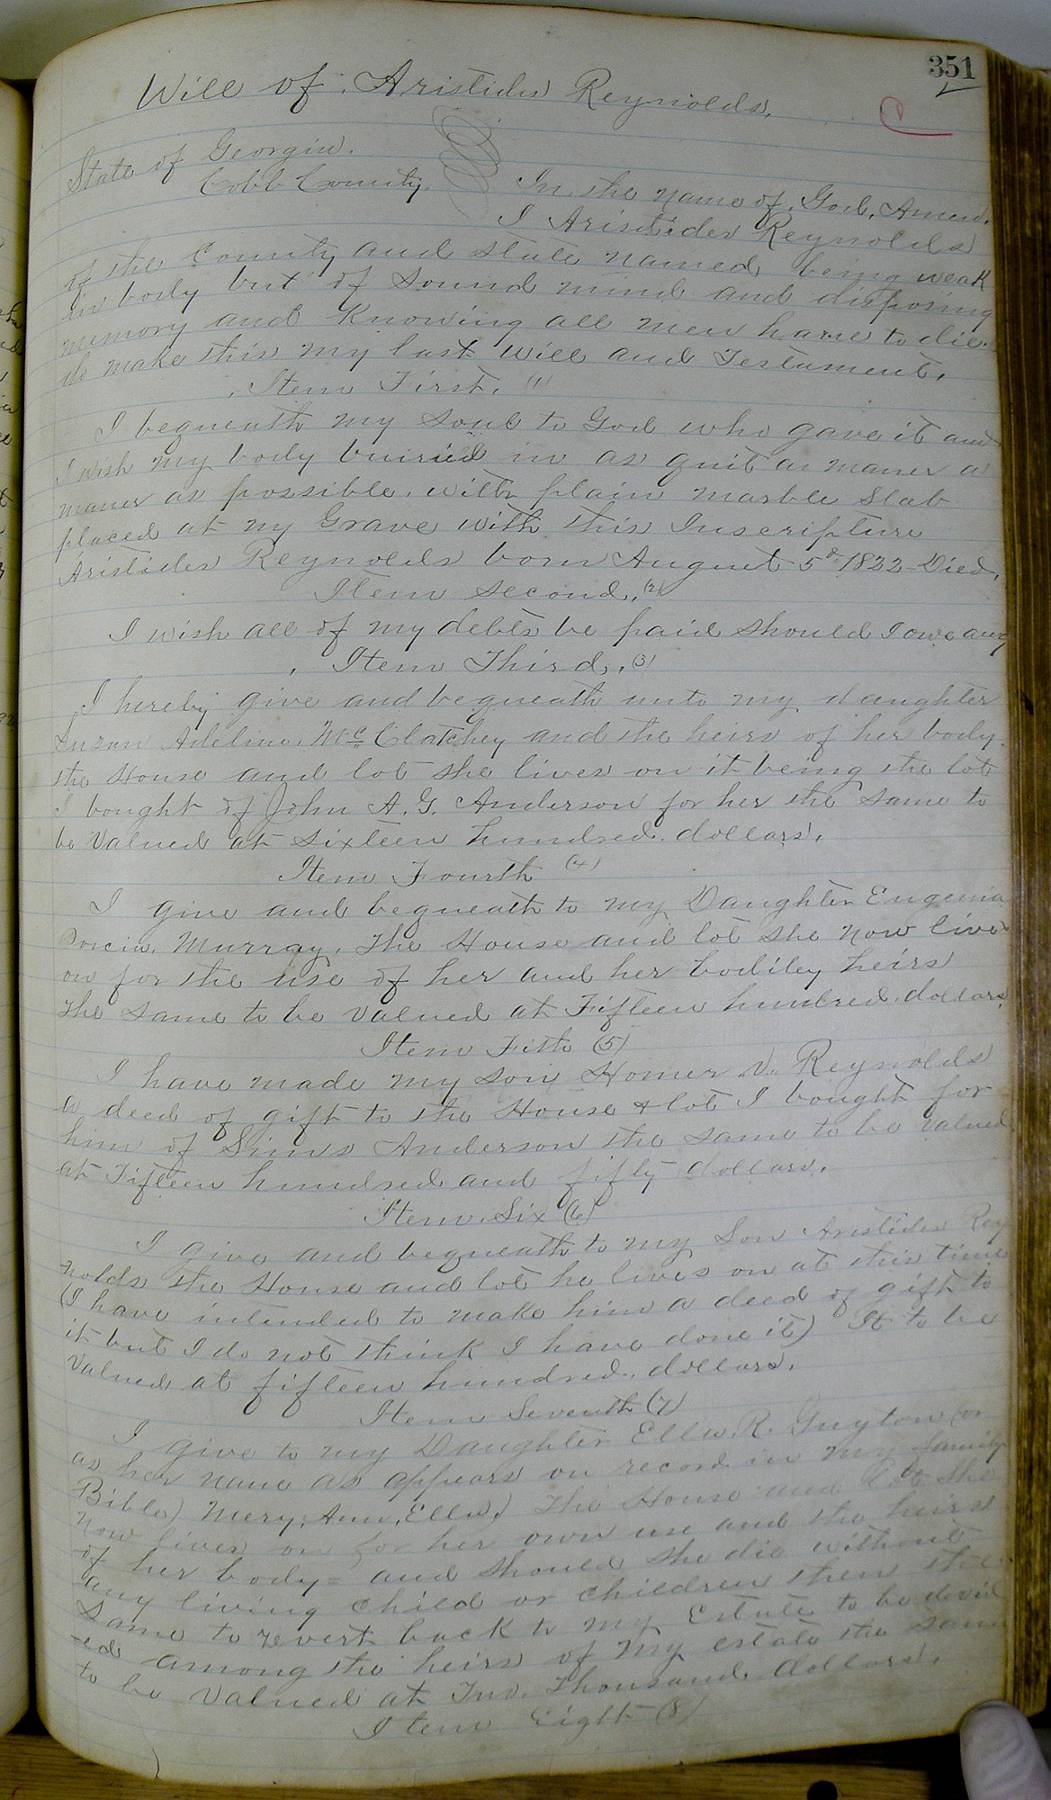 351
Will of Aristides Reynolds.
State of Georgia.
Cobb County.
In the name of God, Amen.
I Aristides Reynolds
of the County and state named, being weak
in body but of sound mind and disposing
memory and Knowing all men have to die.
do make this my last Will and Testament.
Item First. (1)
I bequeath my soul to God who gave it and
I wish my body buried in as quit a maner a
maner as possible. with plain marble Slab
placed at my Grave with this Inscripture
Aristides Reynolds born August 5th 1822 Died.
Item Second. (2)
I wish all of my debts be paid should I owe any
Item Third. (3)
I hereby give and bequeath unto my daughter
Susan Adeline McClatchey and the heirs of her body
the House and lot she lives on it being the lot
I bought of John A. G. Anderson for her the same to
be Valued at Sixteen hundred dollars.
Item Fourth (4)
I give and bequeath to my Daughter Eugenia
Porcia Murray. The House and lot she now lives
on for the use of her and her bodiley heirs
The same to be Valued at Fifteen hundred dollars
Item Fith (5)
I have made my son Homer V. Reynolds
a deed of gift to the House & lot I bought for
him of Sims Anderson the same to be valued
at Fifteen hundred and fifty dollars.
Item Six (6)
I give and bequeath to my Son Aristides Rey
nolds the House and lot he lives on at this time
(I have intended to make him a deed of gift to
it but I do not think I have done it) It to be
Valued at fifteen hundred dollars.
Item Seventh (7)
I give to my Daughter Ella R. Guyton (or
as her name as appears on record in my family
Bible) Mery, Ann, Ella,) The House and Lot she
now lives on for her own use and the heirs
of her body = and should she die without
any living child or children then the
Same to revert back to my Estate to be devid
-ed among the heirs of my estate the same
to be Valued at Two Thousand dollars.
Item Eight (8)